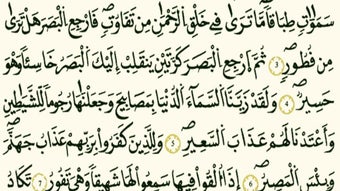 سَمَٰوَٰتٍ طِبَاقًا مَّا تَرَىٰ فِي خَلْقِ الرَّحْمَٰنِ مِن تَفَٰوُتٍ فَارْجِعِ الْبَصَرَ هَلْ تَرَىٰ
مِن فُطُورٍ ۝٣ ثُمَّ ارْجِعِ الْبَصَرَ كَرَّتَيْنِ يَنقَلِبْ إِلَيْكَ الْبَصَرُ خَاسِئًا وَهُوَ
حَسِيرٌ ۝٤ وَلَقَدْ زَيَّنَّا السَّمَاءَ الدُّنْيَا بِمَصَٰبِيحَ وَجَعَلْنَٰهَا رُجُومًا لِّلشَّيَٰطِينِ
وَأَعْتَدْنَا لَهُمْ عَذَابَ السَّعِيرِ ۝٥ وَلِلَّذِينَ كَفَرُوا بِرَبِّهِمْ عَذَابُ جَهَنَّمَ
وَبِئْسَ الْمَصِيرُ ۝٦ إِذَا أُلْقُوا فِيهَا سَمِعُوا لَهَا شَهِيقًا وَهِيَ تَفُورُ ۝٧ تَكَادُ